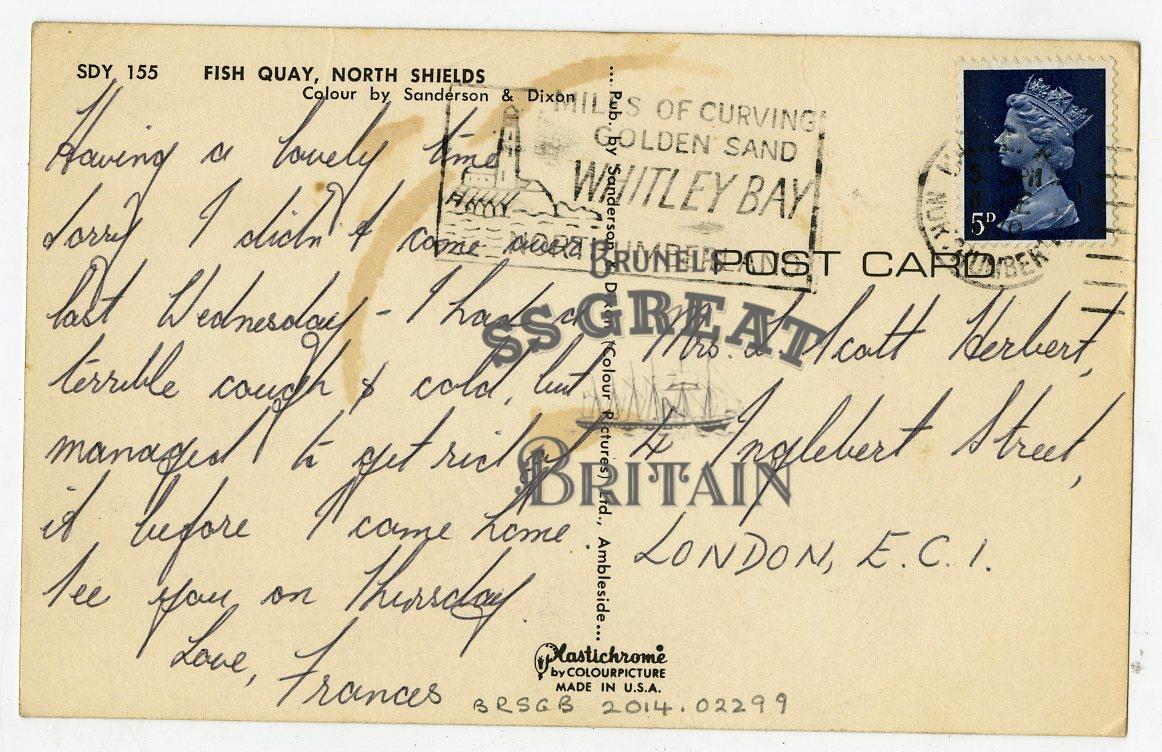 SDY 155 FISH QUAY, NORTH SHIELDS
Colour by Sanderson & Dixon
Having a lovely time
Sorry I didn't come over
last Wednesday - I had a
terrible cough & cold, but
managed to get rid of
it before I came home.
See you on Thursday.
Love,
Frances
.... Pub. by Sanderson & Dixon (Colour Pictures) Ltd., Ambleside...
Plastichrome
by COLOURPICTURE
MADE IN U.S.A.
BRSGB 2014.02299
MILES OF CURVING
GOLDEN SAND
WHITLEY BAY
NORTHUMBERLAND
5D
POST CARD
Mrs. Scott Herbert,
4 Inglebert Street,
LONDON, E.C.1.
BRUNEL'S
SS GREAT
BRITAIN